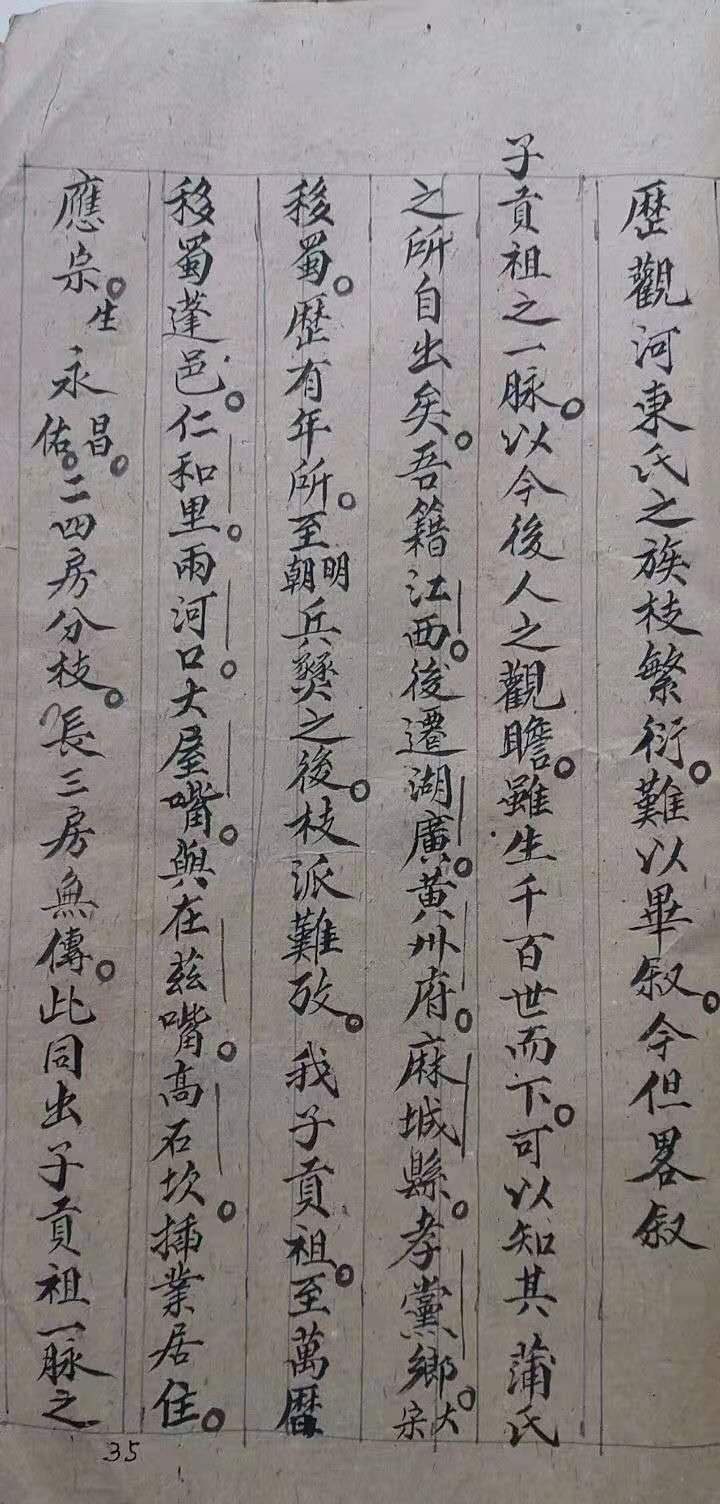 歷觀河東氏之族枝繁衍。難以畢叙。今但畧叙
子貢祖之一脉。以今後人之觀瞻。雖生千百世而下。可以知其蒲氏
之所自出矣。吾籍江西。後遷湖廣。黃州府。麻城縣。孝黨鄉。大宗
移蜀。歷有年所。至明朝兵燹之後。枝派難攷。我子貢祖。至萬曆
移蜀蓬邑。仁和里。兩河口。大屋嘴。與在茲嘴。高石坎。插業居住。
應宗。生永昌。佑。二四房分枝。長三房無傳。此同出子貢祖一脉之
35